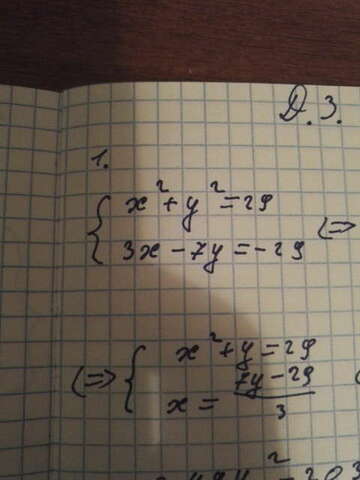 Д.З.
1.
{ x² + y² = 29
3x - 7y = -29 (=>
(=>) { x² + y = 29
x = (7y - 29)/3